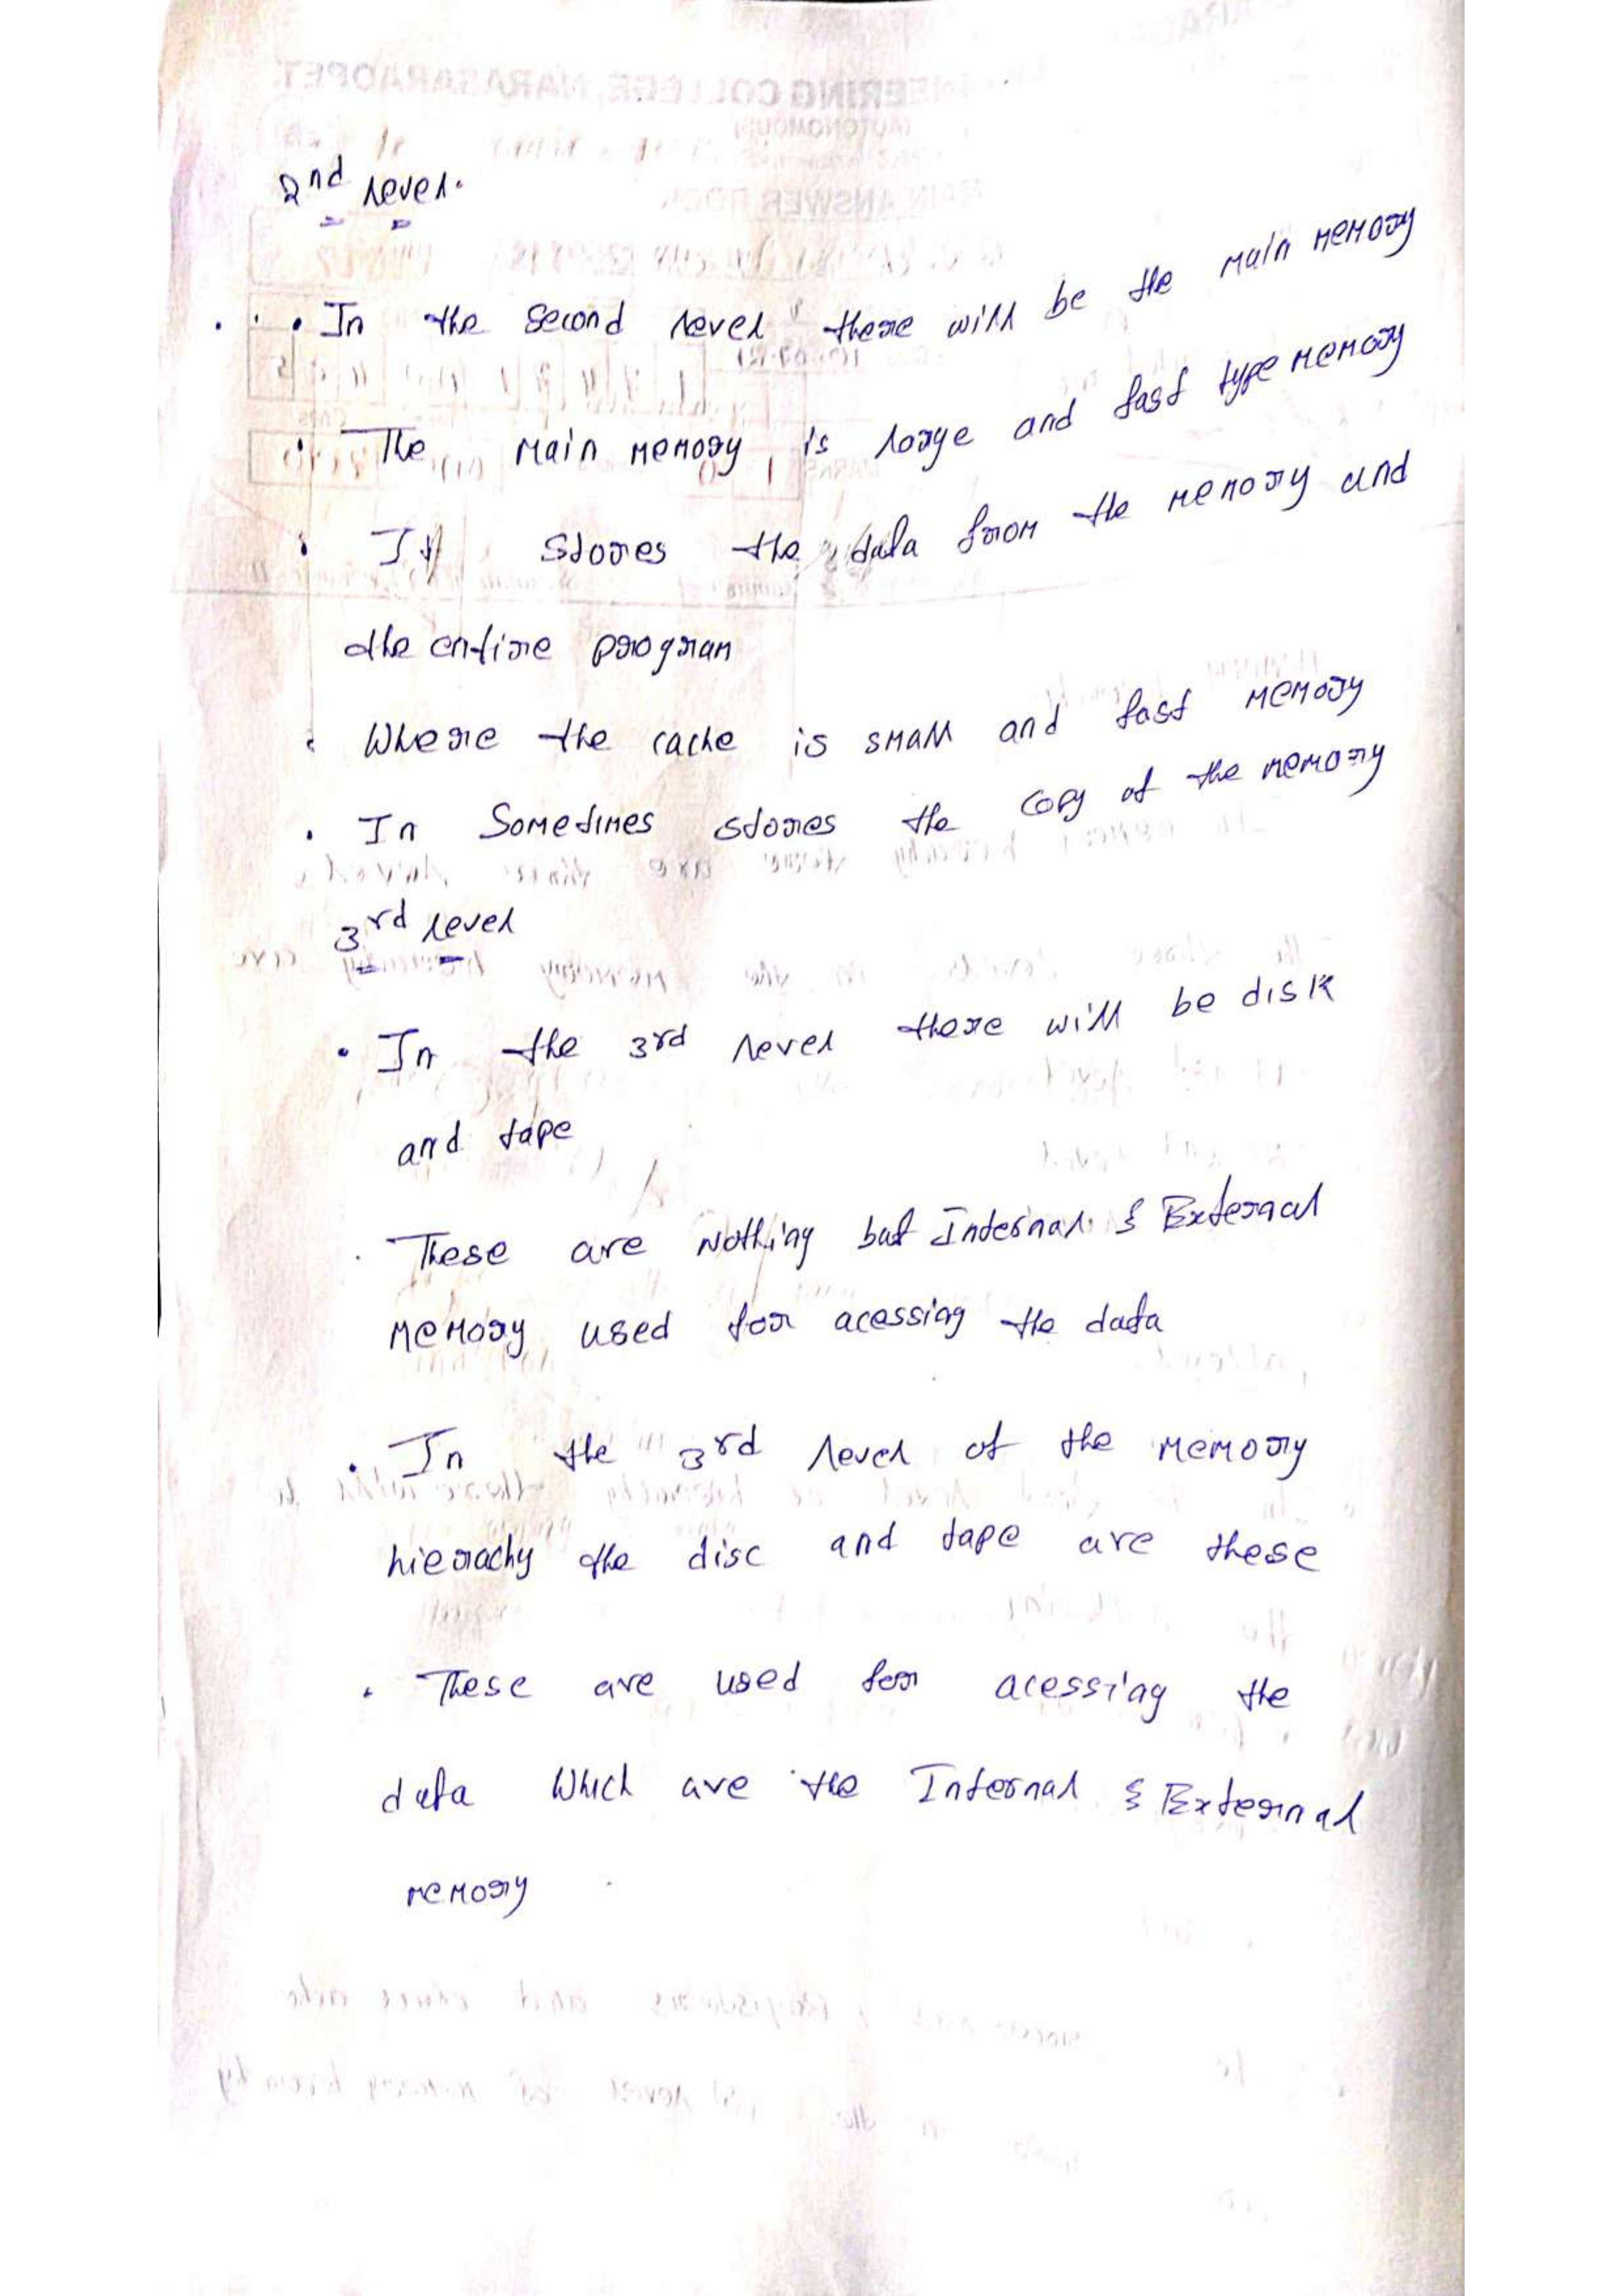 2nd level.
• In the second level there will be the main memory
• The main memory is large and fast type memory
• It stores the data from the memory and
the entire program
• Where the cache is small and fast memory
• In Sometimes stores the copy of the memory
3rd level
• In the 3rd level there will be disk
and tape
• These are Nothing but Internal & External
memory used for acessing the data
• In the 3rd level of the memory
hierachy the disc and tape are these
• These are used for acessing the
data Which are the Internal & External
memory